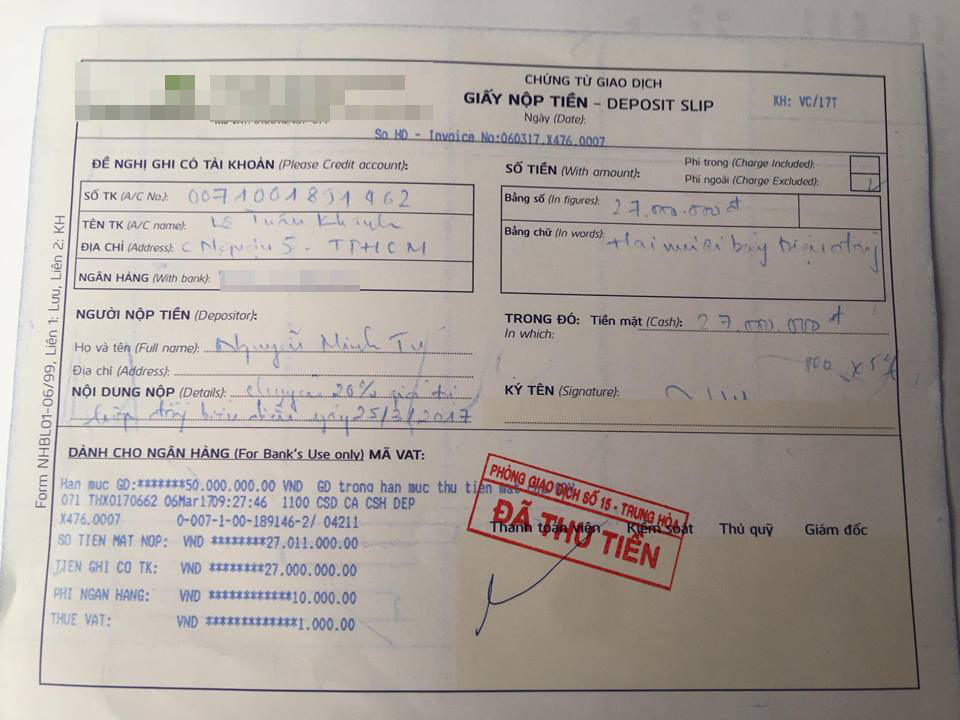 CHỨNG TỪ GIAO DỊCH
GIẤY NỘP TIỀN – DEPOSIT SLIP
KH: VC/17T
Ngày (Date):
So HD - Invoice No:060317.X476.0007
ĐỀ NGHỊ GHI CÓ TÀI KHOẢN (Please Credit account):
SỐ TK (A/C No.) 0071001831962
TÊN TK (A/C name): Lê Tuấn Khanh
ĐỊA CHỈ (Address): 5 - TPHCM
NGÂN HÀNG (With bank):
SỐ TIỀN (With amount):
Phí trong (Charge Included):
Phí ngoài (Charge Excluded):
Bằng số (In figures): 27.000.000đ
Bằng chữ (In words): Hai mươi bảy triệu đồng
NGƯỜI NỘP TIỀN (Depositor):
Họ và tên (Full name): Nguyễn Minh Tú
Địa chỉ (Address):
NỘI DUNG NỘP (Details): chuyển 20% giá trị
ngày 25/3/2017
TRONG ĐÓ: Tiền mặt (Cash): 27.000.000đ
In which:
KÝ TÊN (Signature):
Form NHBL01-06/99, Liên 1: Lưu, Liên 2: KH
DÀNH CHO NGÂN HÀNG (For Bank's Use only) MÃ VAT:
Han muc GD:*******50.000.000.00 VND GD trong han muc thu tien mat
071 THX0170662 06Mar17 09:27:46 1100 CSD CA CSH DEP
X476.0007 0-007-1-00-189146-2/ 04211
SO TIEN MAT NOP: VND ********27,011.000.00
TIEN GHI CO TK: VND ********27.000.000.00
PHI NGAN HANG: VND ************10.000.00
THUE VAT: VND *************1.000.00
PHÒNG GIAO DỊCH SỐ 15 - TRUNG HÒA
ĐÃ THU TIỀN
Thanh toán viên Kiểm soát Thủ quỹ Giám đốc